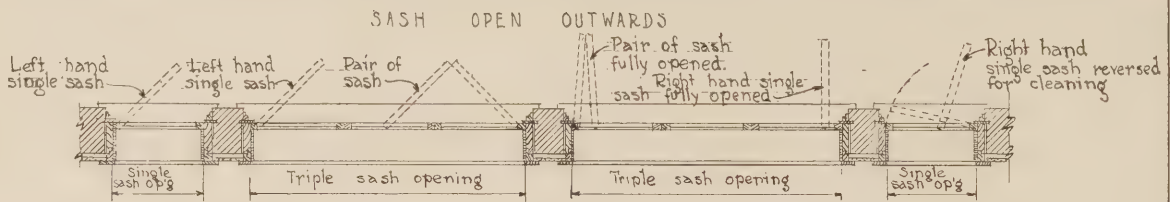 SASH OPEN OUTWARDS
Left hand
single sash
Left hand
single sash
Pair of
sash
Pair of sash
fully opened.
Right hand single
sash fully opened
Right hand
single sash reversed
for cleaning
Single
sash op'g
Triple sash opening
Triple sash opening
Single
sash op'g